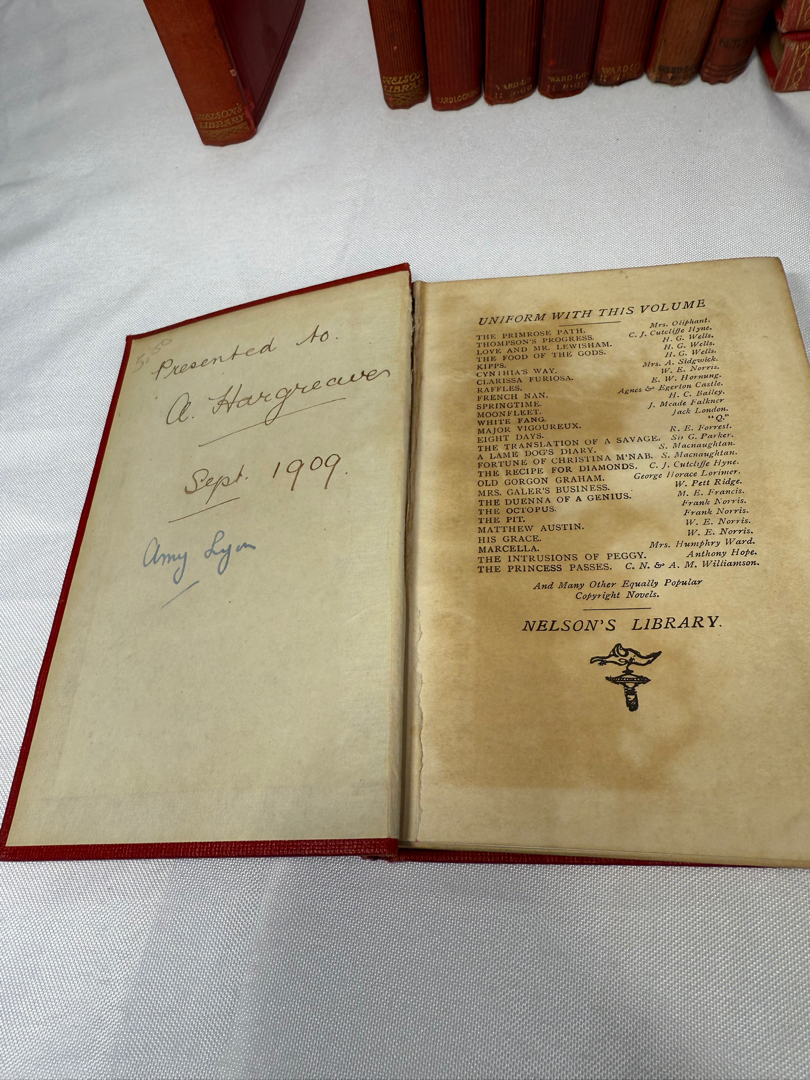 NELSON'S
LIBRARY
NELSON'S
LIBRARY
WARD LOCK
WARD LOCK
WARD LOCK
WARD LOCK
Presented to.
A. Hargreaves
Sept. 1909.
Amy Lyon
UNIFORM WITH THIS VOLUME
THE PRIMROSE PATH. Mrs. Oliphant.
THOMPSON'S PROGRESS. C. J. Cutcliffe Hyne.
LOVE AND MR. LEWISHAM. H. G. Wells.
THE FOOD OF THE GODS. H. G. Wells.
KIPPS. H. G. Wells.
CYNTHIA'S WAY. Mrs. A. Sidgwick.
CLARISSA FURIOSA. W. E. Norris.
RAFFLES. E. W. Hornung.
FRENCH NAN. Agnes & Egerton Castle.
SPRINGTIME. H. C. Bailey.
MOONFLEET. J. Meade Falkner
WHITE FANG. Jack London.
MAJOR VIGOUREUX. "Q."
EIGHT DAYS. R. E. Forrest.
THE TRANSLATION OF A SAVAGE. Sir G. Parker.
A LAME DOG'S DIARY. S. Macnaughtan.
FORTUNE OF CHRISTINA M'NAB. S. Macnaughtan.
THE RECIPE FOR DIAMONDS. C. J. Cutcliffe Hyne.
OLD GORGON GRAHAM. George Horace Lorimer.
MRS. GALER'S BUSINESS. W. Pett Ridge.
THE DUENNA OF A GENIUS. M. E. Francis.
THE OCTOPUS. Frank Norris.
THE PIT. Frank Norris.
MATTHEW AUSTIN. W. E. Norris.
HIS GRACE. W. E. Norris.
MARCELLA. Mrs. Humphry Ward.
THE INTRUSIONS OF PEGGY. Anthony Hope.
THE PRINCESS PASSES. C. N. & A. M. Williamson.
And Many Other Equally Popular
Copyright Novels.
NELSON'S LIBRARY.